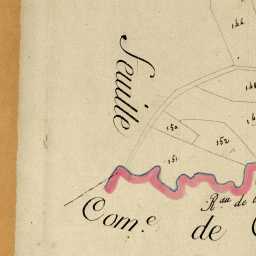 Feuille
150
152
151
R.au de
Com.e de